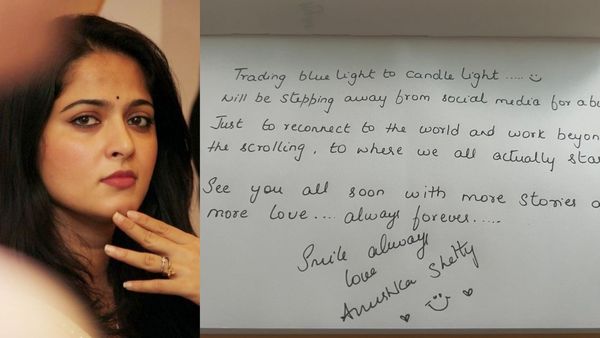 Trading blue light to candle light.....
will be stepping away from social media for a
Just to reconnect to the world and work
the scrolling, to where we all actually
See you all soon with more stories
more love.... always forever.....
Smile always
love
Anushka Shetty